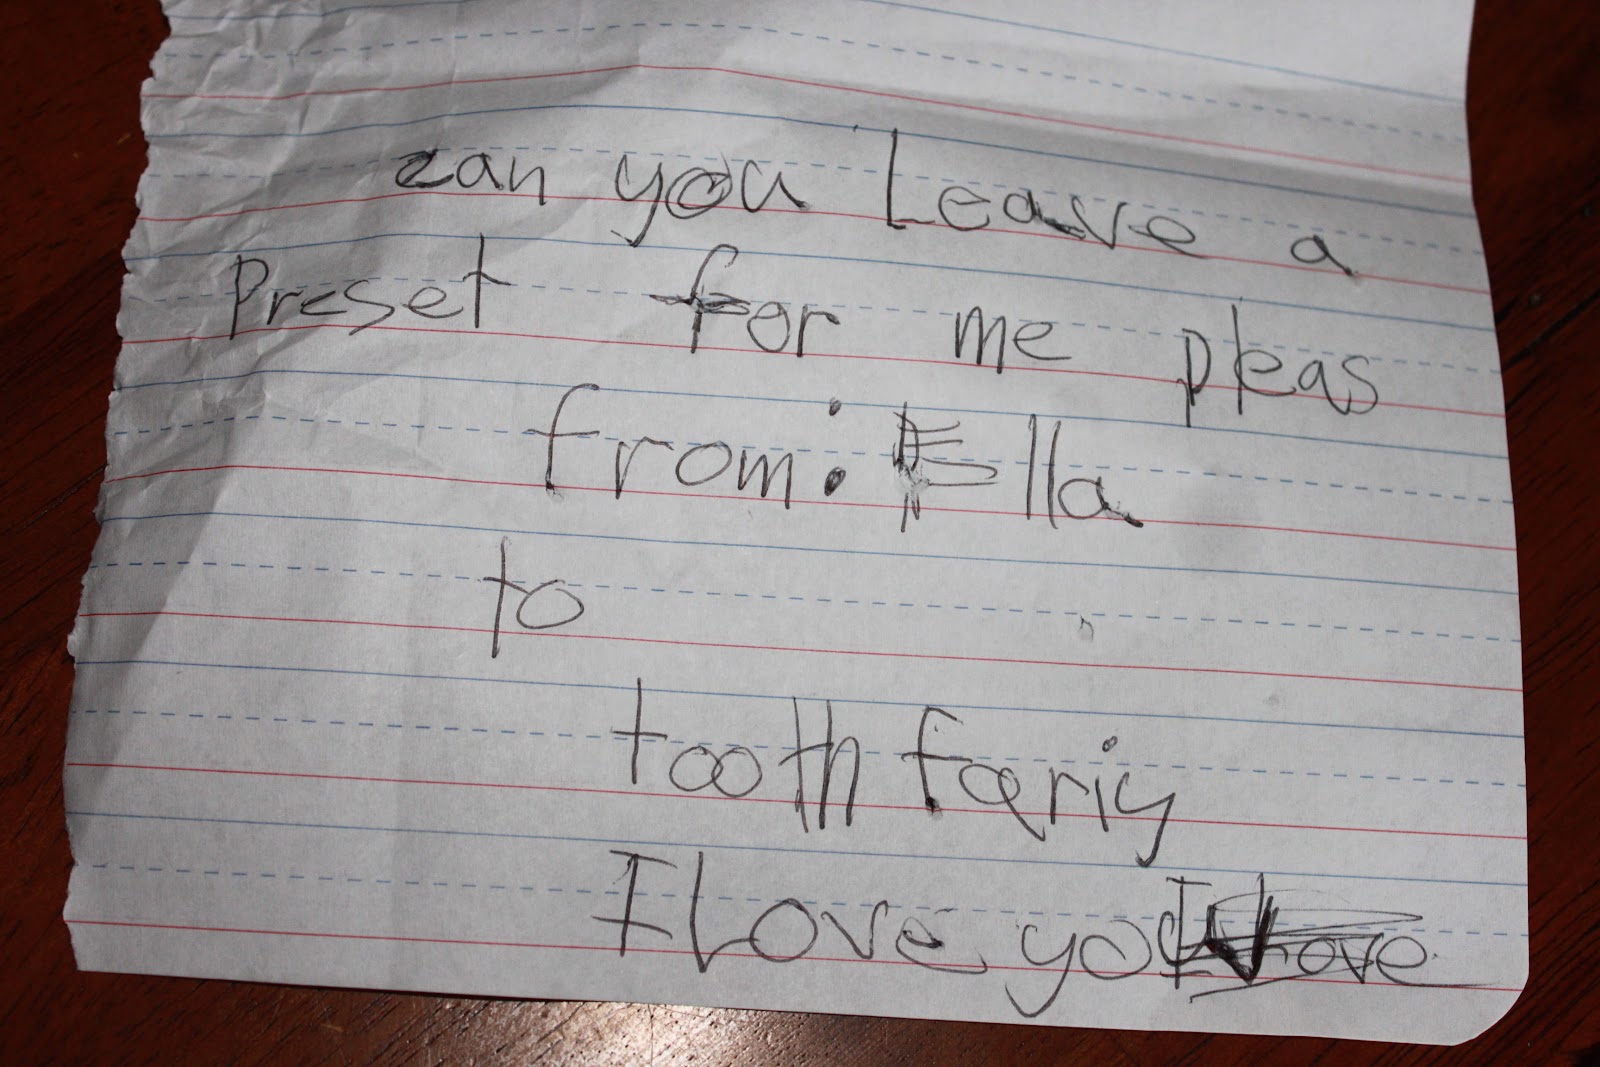 can you Leave a
Preset for me pleas
from: Ella
to
tooth fariy
I Love you